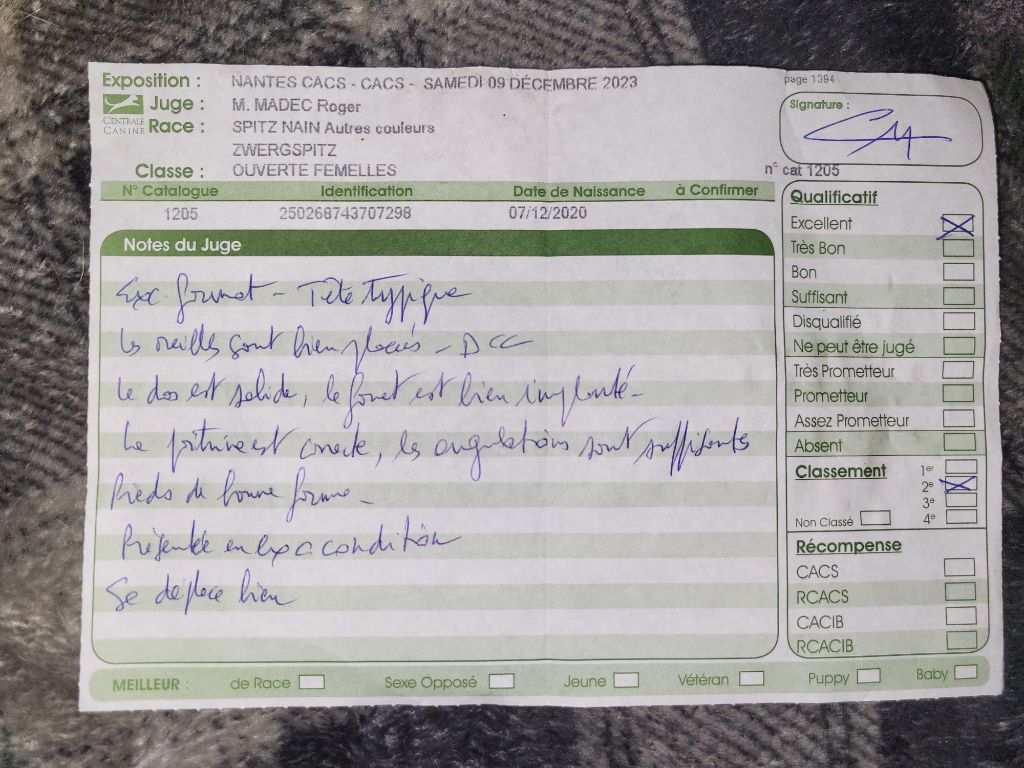 Exposition : NANTES CACS - CACS - SAMEDI 09 DÉCEMBRE 2023
page 1394
CENTRALE CANINE
Juge : M. MADEC Roger
Signature :
Race : SPITZ NAIN Autres couleurs
ZWERGSPITZ
Classe : OUVERTE FEMELLES
n° cat 1205
N° Catalogue Identification Date de Naissance à Confirmer
1205 250268743707298 07/12/2020
Notes du Juge
Exc. format - Tête typique
Les oreilles sont bien placées - DCC
Le dos est solide, le fouet est bien implanté -
La poitrine est correcte, les angulations sont suffisantes
Pieds de bonne forme -
Présentée en exc condition
Se déplace bien
Qualificatif
Excellent
Très Bon
Bon
Suffisant
Disqualifié
Ne peut être jugé
Très Prometteur
Prometteur
Assez Prometteur
Absent
Classement 1er
2e
3e
Non Classé 4e
Récompense
CACS
RCACS
CACIB
RCACIB
MEILLEUR : de Race Sexe Opposé Jeune Vétéran Puppy Baby